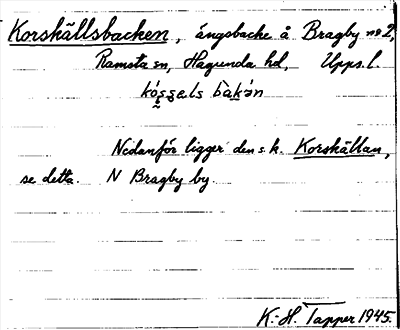 Korskällsbacken, ängsbacke å Bragby no 2,
Ramsta sn, Hagunda hd, Upps. l.
Nedanför ligger den s.k. Korskällan,
se detta. N Bragby by.
K.-H. Tapper 1945.